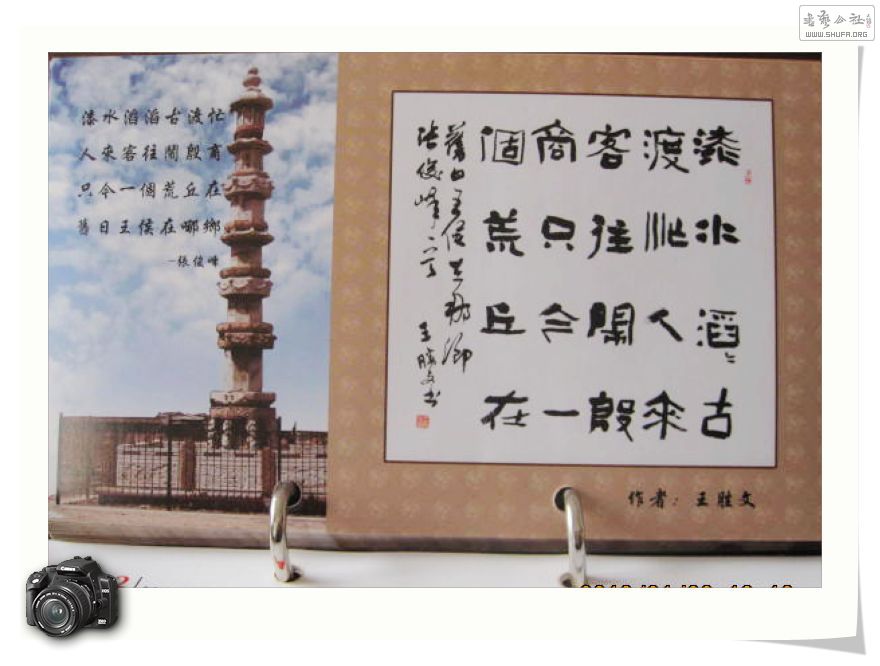 書藝公社
WWW.SHUFA.ORG
漆水滔滔古渡忙
人來客往鬧殷商
只今一個荒丘在
舊日王侯在哪鄉
-張俊峰
漆水滔〻古
渡忙人來
客往鬧殷
商只今一
個荒丘在
舊日王侯在那鄉
張俊峰
王勝文书
作者：王胜文
Canon
EOS